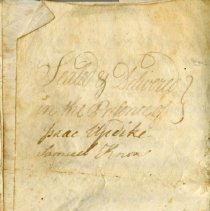 Sealed & Delivered
in the Presence of
Isaac Updike
Samuel